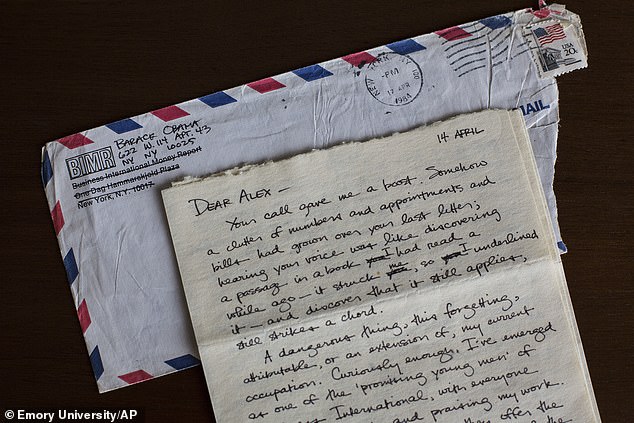 NEW YORK, NY
PM
17 APR
1984
USA
20c
MAIL
BIMR
BARACK OBAMA
622 W. 114 APT. 43
NY NY 10025
Business International Money Report
One Dag Hammarskjold Plaza
New York, N.Y. 10017
14 APRIL
DEAR ALEX —
Your call gave me a boost. Somehow
a clutter of numbers and appointments and
bills had grown over your last letter;
hearing your voice was like discovering
a passage in a book I had read a
while ago — it struck me, so I underlined
it — and discover that it still applies,
still strikes a chord.
A dangerous thing, this forgetting,
attributable, or an extension of, my current
occupation. Curiously enough, I've emerged
as one of the "promising young men" of
International, with everyone
and praising my work.
offer the
Emory University/AP